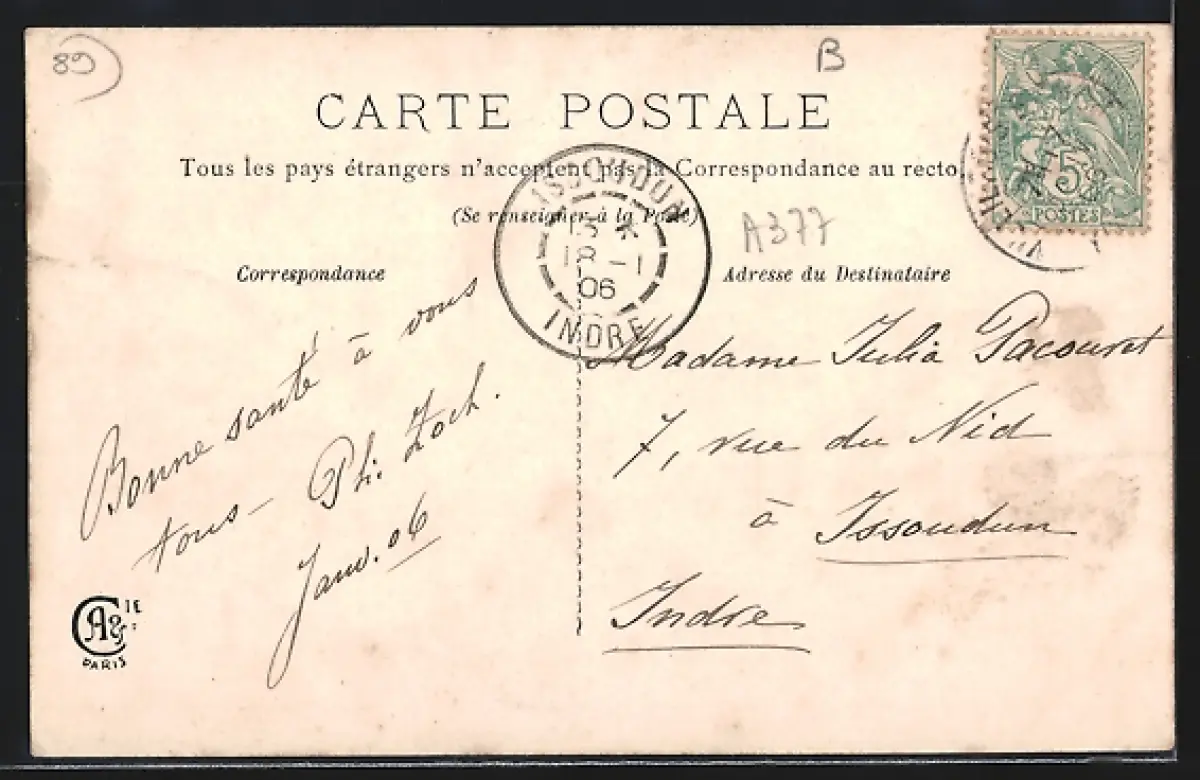 89
B
CARTE POSTALE
Tous les pays étrangers n'acceptent pas la Correspondance au recto.
(Se renseigner à la Poste)
A377
ISSOUDUN
18 -1
06
INDRE
5
POSTES
Correspondance
Adresse du Destinataire
Bonne santé à vous
tous - Ph. Zoch.
Janv. 06
Madame Julia Pacouret
7, rue du Nid
à Issoudun
Indre
CA & IE
PARIS